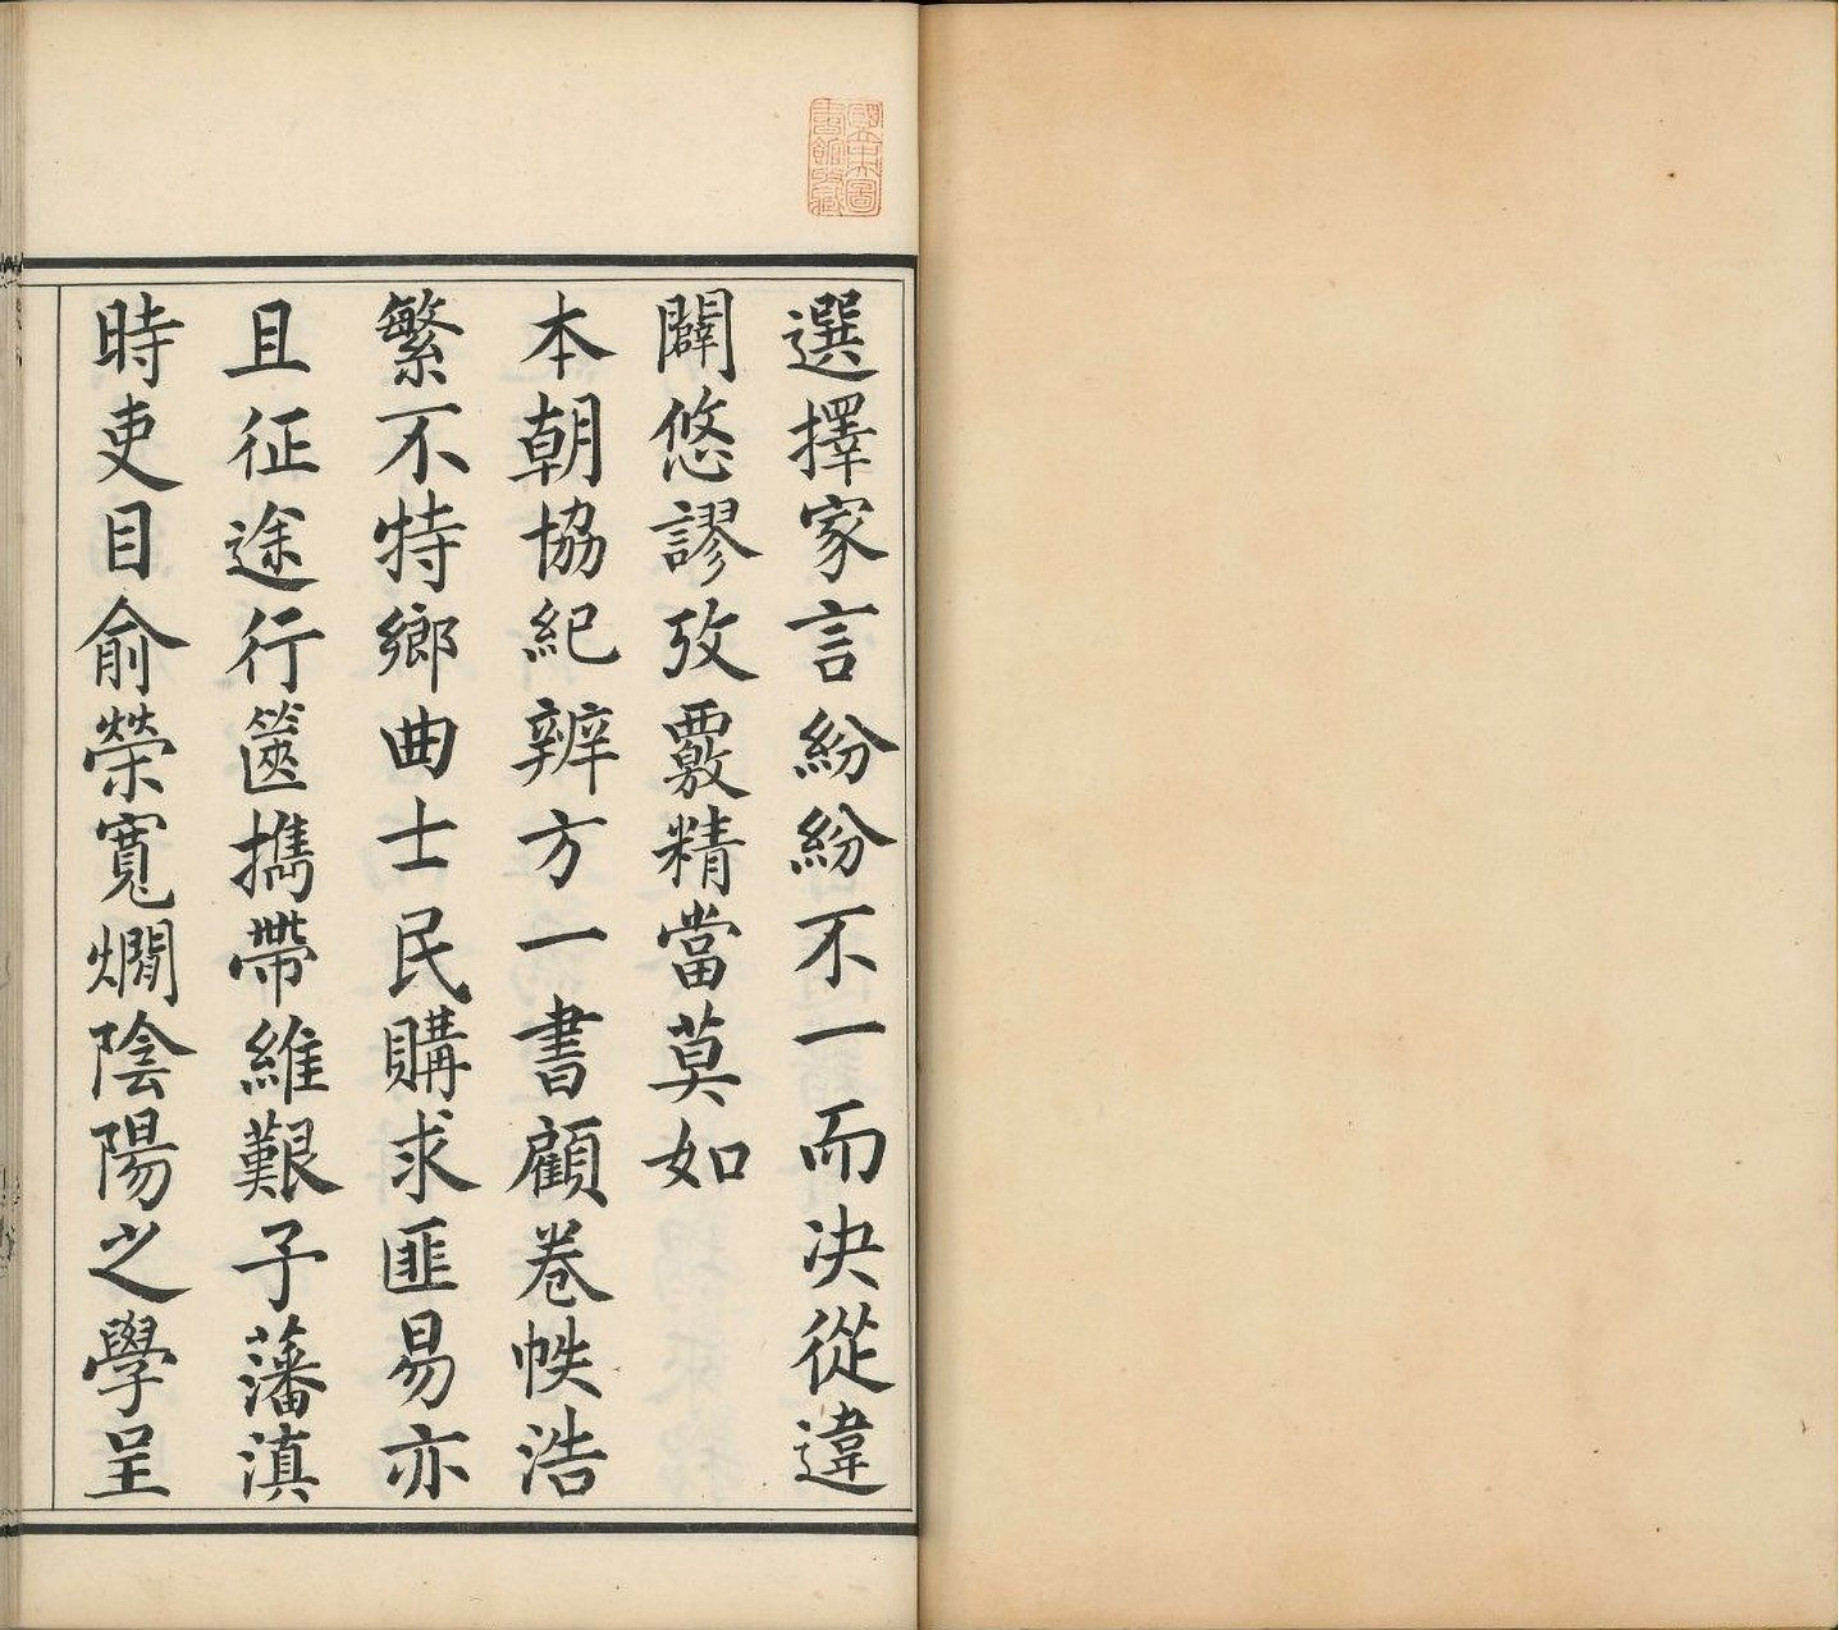 國立中央圖
書館收藏
選擇家言紛紛不一而决從違
闢悠謬攷覈精當莫如
本朝協紀辨方一書顧卷帙浩
繁不特鄉曲士民購求匪易亦
且征途行篋攜帶維艱予藩滇
時吏目俞榮寬爛陰陽之學呈